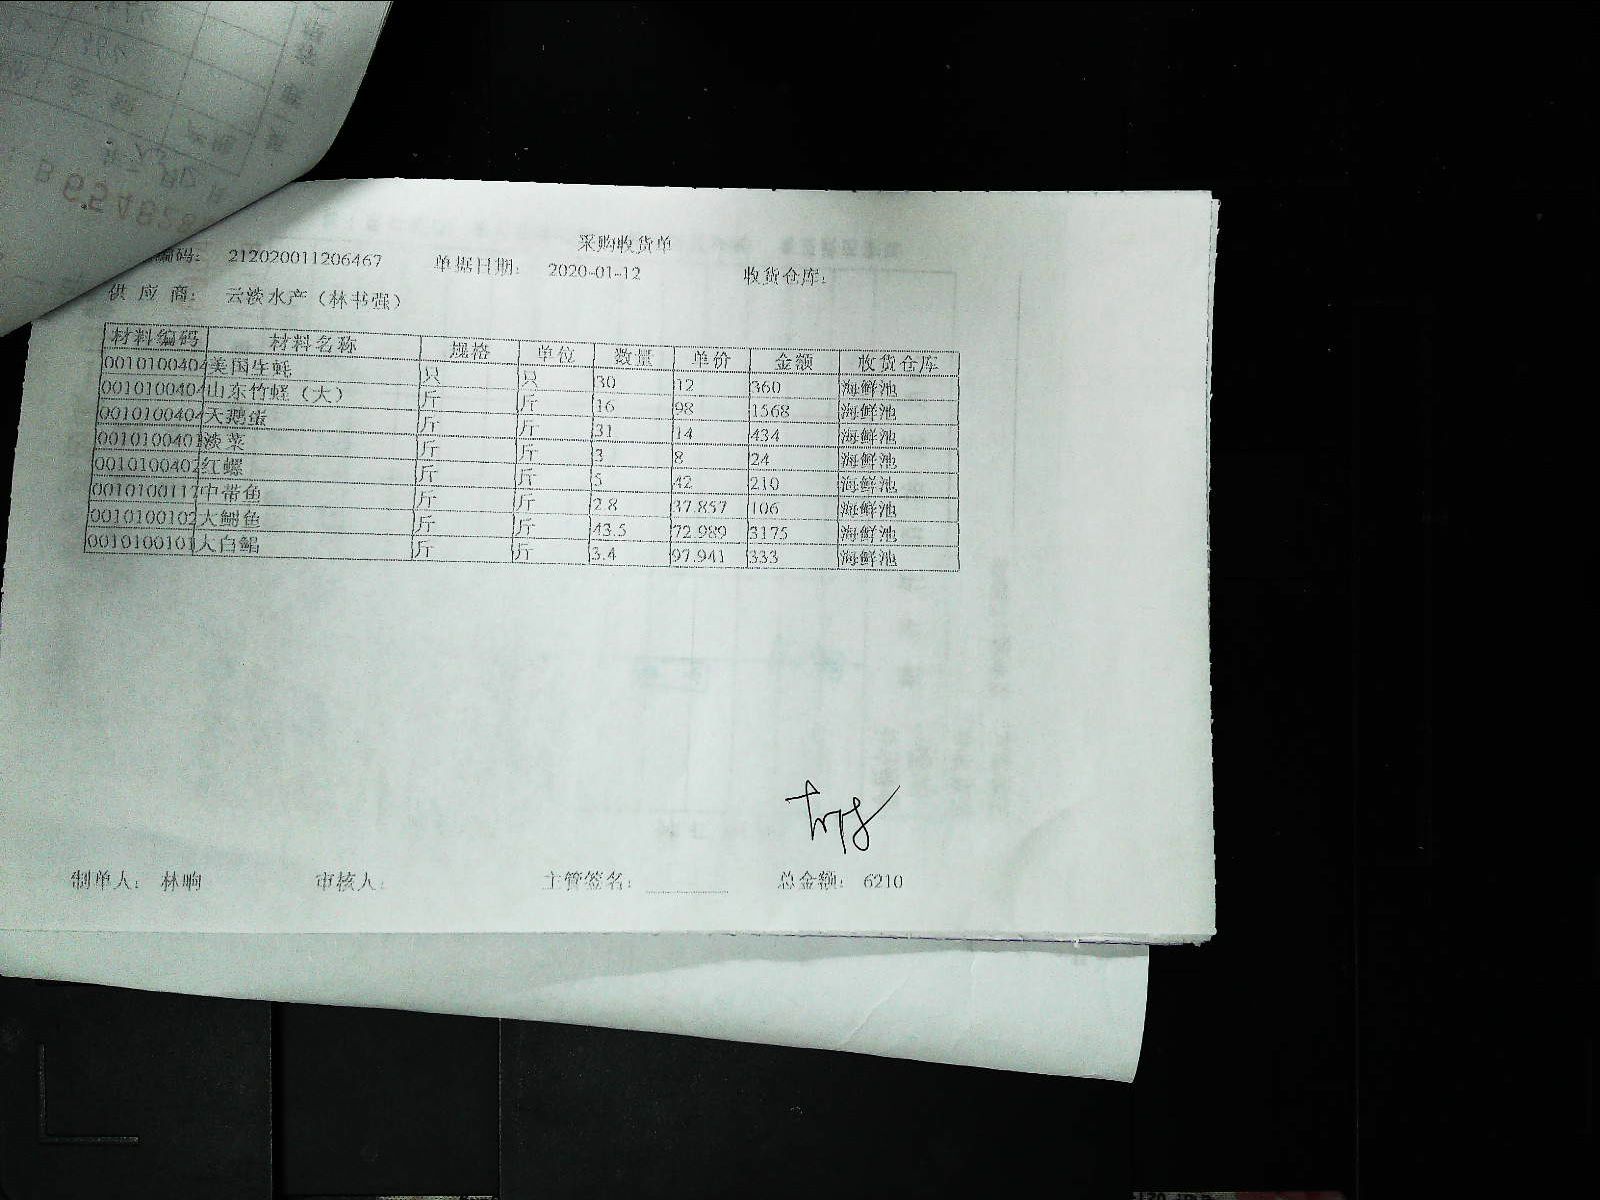 采购收货单
编码： 212020011206467 单据日期： 2020-01-12 收货仓库：
供 应 商： 云淡水产（林书强）
材料编码 材料名称 规格 单位 数量 单价 金额 收货仓库
0010100404 美国生蚝 只 只 30 12 360 海鲜池
0010100404 山东竹蛏（大） 斤 斤 16 98 1568 海鲜池
0010100404 天鹅蛋 斤 斤 31 14 434 海鲜池
0010100401 淡菜 斤 斤 3 8 24 海鲜池
0010100402 红螺 斤 斤 5 42 210 海鲜池
0010100117 中带鱼 斤 斤 2.8 37.857 106 海鲜池
0010100102 大鮸鱼 斤 斤 43.5 72.989 3175 海鲜池
0010100101 大白鲳 斤 斤 3.4 97.941 333 海鲜池
制单人： 林晌 审核人： 主管签名： 总金额： 6210